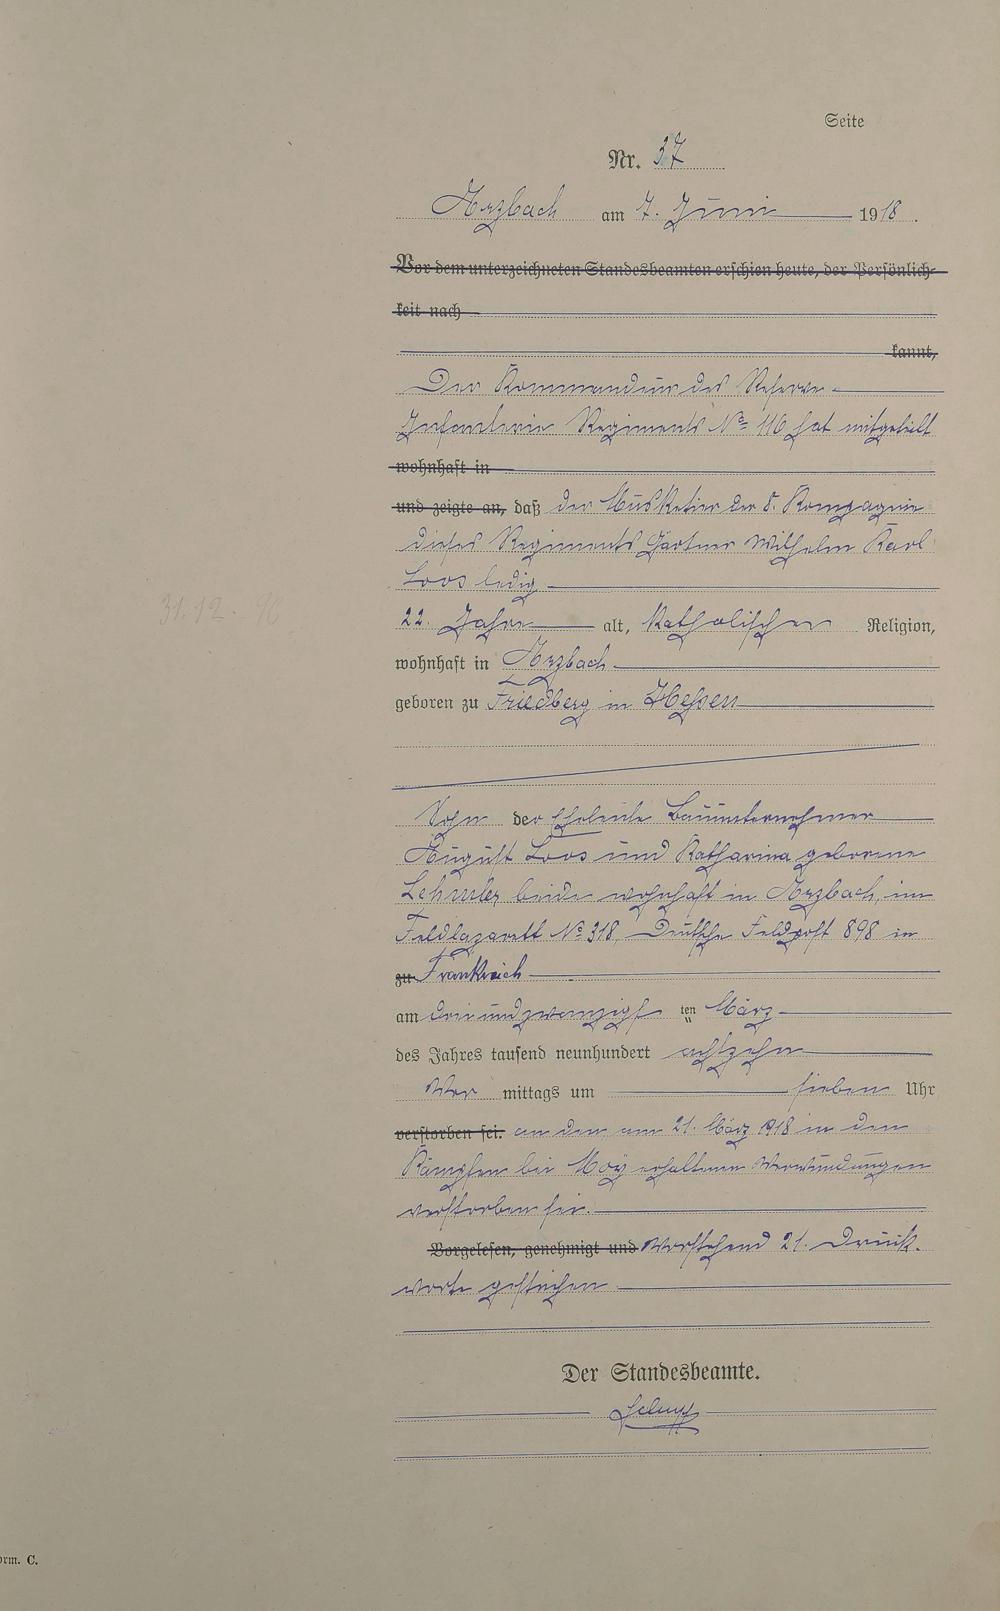 Seite
Nr. 37
Arzbach am 7. Juni 1918.
Vor dem unterzeichneten Standesbeamten erschien heute, der Persönlich-
keit nach
kannt,
Der Kommandeur des Reserve-
Infanterie Regiments No 116 hat mitgeteilt
wohnhaft in
und zeigte an, daß der Musketier der 8. Kompagnie
dieses Regiments Gärtner Wilhelm Karl
Loos ledig
31.12.96
22 Jahre alt, katholischer Religion,
wohnhaft in Arzbach
geboren zu Friedberg in Hessen
Sohn der Eheleute Bauunternehmer
August Loos und Katharina geborene
beide wohnhaft in Arzbach, im
Feldlazarett No 318, Deutsche Feldpost 898 in
zu Frankreich
am dreiundzwanzigsten März
des Jahres tausend neunhundert achtzehn
Vor mittags um sieben Uhr
verstorben sei. an den am 21. März 1918 in den
Kämpfen bei Moÿ erhaltenen Verwundungen
verstorben sei.
Vorgelesen, genehmigt und Vorstehend 21 Druck-
worte gestrichen
Der Standesbeamte.
orm. C.